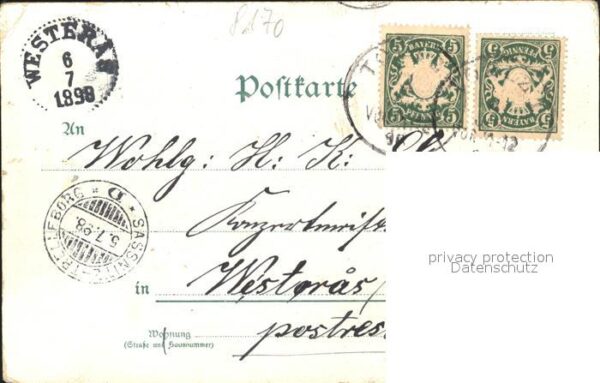 8.170
WESTERÅS
6
7
1898
Postkarte
5 BAYERN 5
PFENNIG
5 BAYERN 5
PFENNIG
An
Wohlg: H: K:
SASSNITZ-TRELLEBORG
5.7.98.
Konzertmeist
privacy protection
Datenschutz
in Westerås
postres
Wohnung
(Straße und Hausnummer)